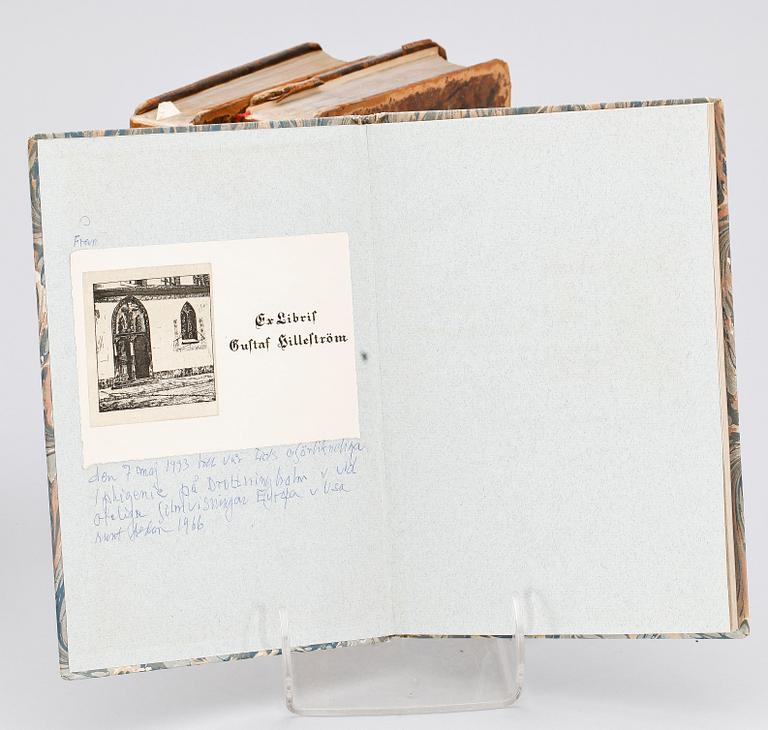 Från
Ex Libris
Gustaf Hilleström
den 7 maj 1993 vår oförlikneliga
Iphigenie på Drottningholm v vid
otaliga filmvisningar Europa v USA
runt sedan 1966